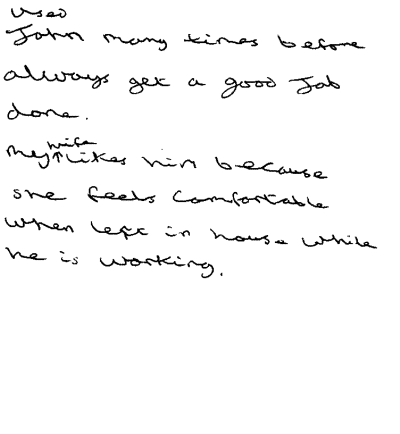 used
John many times before
always get a good Job
done.
my wife likes him because
she feels comfortable
when left in house while
he is working.